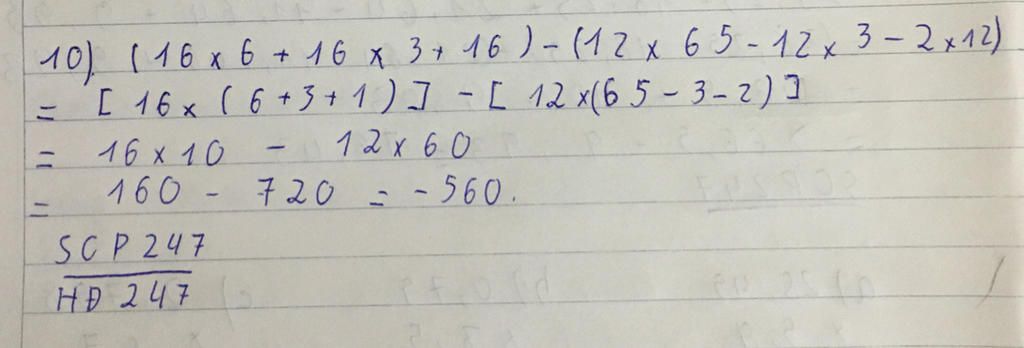 10). (16 x 6 + 16 x 3 + 16) - (12 x 65 - 12 x 3 - 2 x 12)
= [ 16 x ( 6 + 3 + 1 ) ] - [ 12 x (65 - 3 - 2) ]
= 16 x 10 - 12 x 60
= 160 - 720 = - 560.
SCP 247
HĐ 247